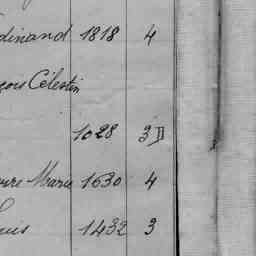 dinand 1818 4
çois Célestin
1028 3
Marie 1630 4
uis 1432 3